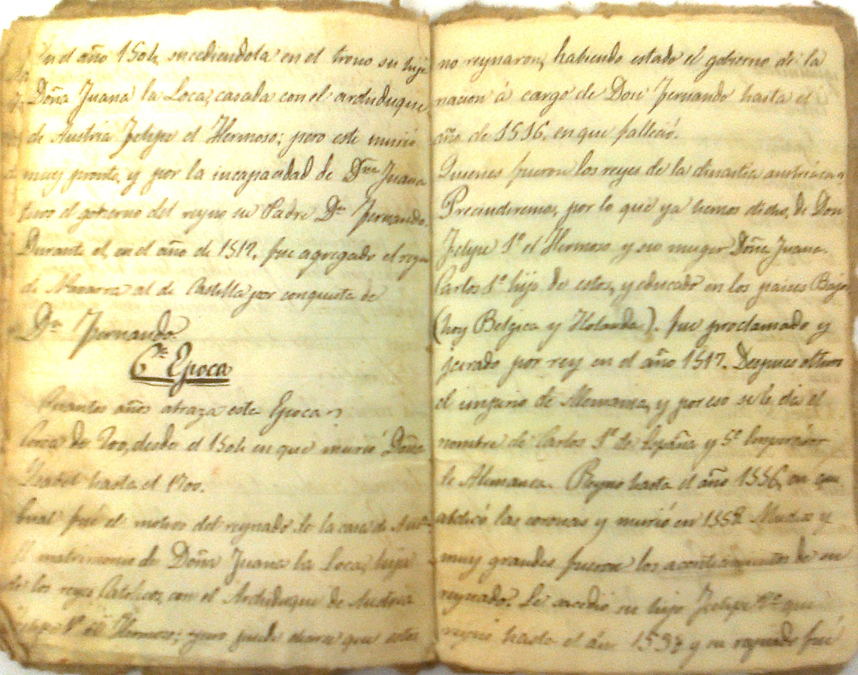 en el año 1504, sucediendola en el trono su hija
Doña Juana la Loca, casada con el archiduque
de Austria Felipe el Hermoso; pero este murió
muy pronto, y por la incapacidad de Dña Juana
tuvo el gobierno del reyno su Padre Dn Fernando.
Durante el, en el año de 1512, fue agregado el reyno
de Navarra al de Castilla por conquista de
Dn Fernando.
6ª Epoca
Cuantos años abraza esta Epoca?
Cerca de 200, desde el 1504 en que murió Doña
Ysabel hasta el 1700.
Cual fue el motivo del reynado de la casa de
El matrimonio de Doña Juana la Loca, hija
de los reyes Catolicos, con el Archiduque de Austria
Felipe 1º el Hermoso; pero puede que estos
no reynaron, habiendo estado el gobierno de la
nacion á cargo de Don Fernando hasta el
año de 1516, en que falleció.
Quienes fueron los reyes de la dinastia austriaca?
por lo que ya hemos dicho, de Don
Felipe 1º el Hermoso y su muger Doña Juana.
Carlos 1º hijo de estos, y educado en los paises Bajos
(hoy Belgica y Holanda). fue proclamado y
jurado por rey en el año 1517. Despues obtuvo
el imperio de Alemania, y por eso se le dá el
nombre de Carlos 1º de España y 5º Emperador
de Alemania. Reynó hasta el año 1556, en que
abdicó las coronas y murió en 1558. Muchos y
muy grandes fueron los acontecimientos de su
reynado. Le sucedio su hijo Felipe 2º que
reynó hasta el año 1598 y su reynado fué